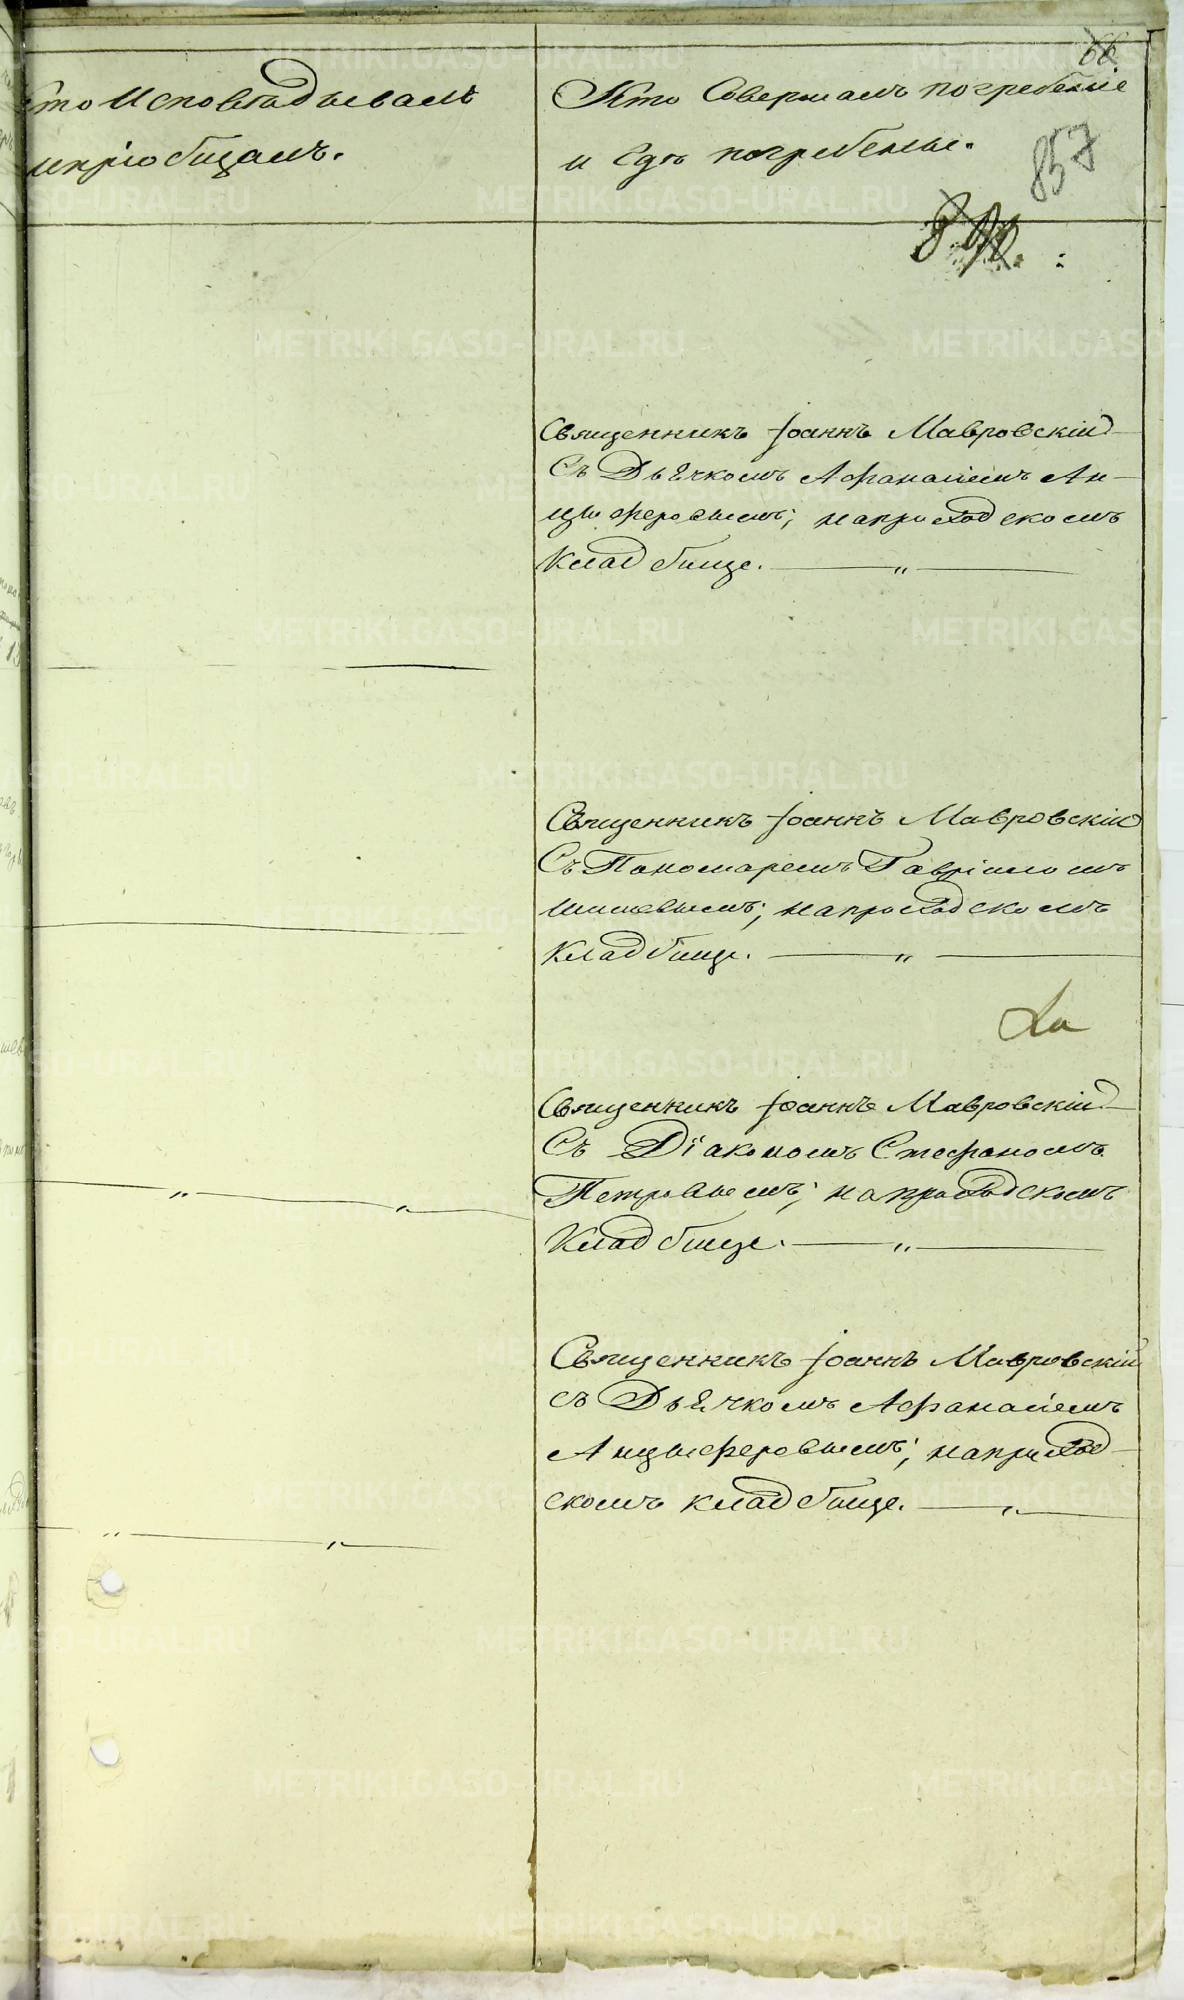 66.
Кто Исповѣдывалъ
и пріобщалъ.
Кто Совершалъ погребеніе
и гдѣ погребены.
857
Священникъ Іоаннъ Мавровскій
Съ Дьячкомъ Афанасіемъ Ан-
цыферовымъ; на приходскомъ
Кладбище. „
Священникъ Іоаннъ Мавровскій
Съ Пономаремъ Гавріиломъ
на приходскомъ
Кладбище. „
Священникъ Іоаннъ Мавровскій
Съ Діакономъ Стефаномъ
Петровымъ; на приходскомъ
Кладбище. „
Священникъ Іоаннъ Мавровскій
съ Дьячкомъ Афанасіемъ
Анцыферовымъ; на приход-
скомъ кладбище. „
METRIKI.GASO-URAL.RU